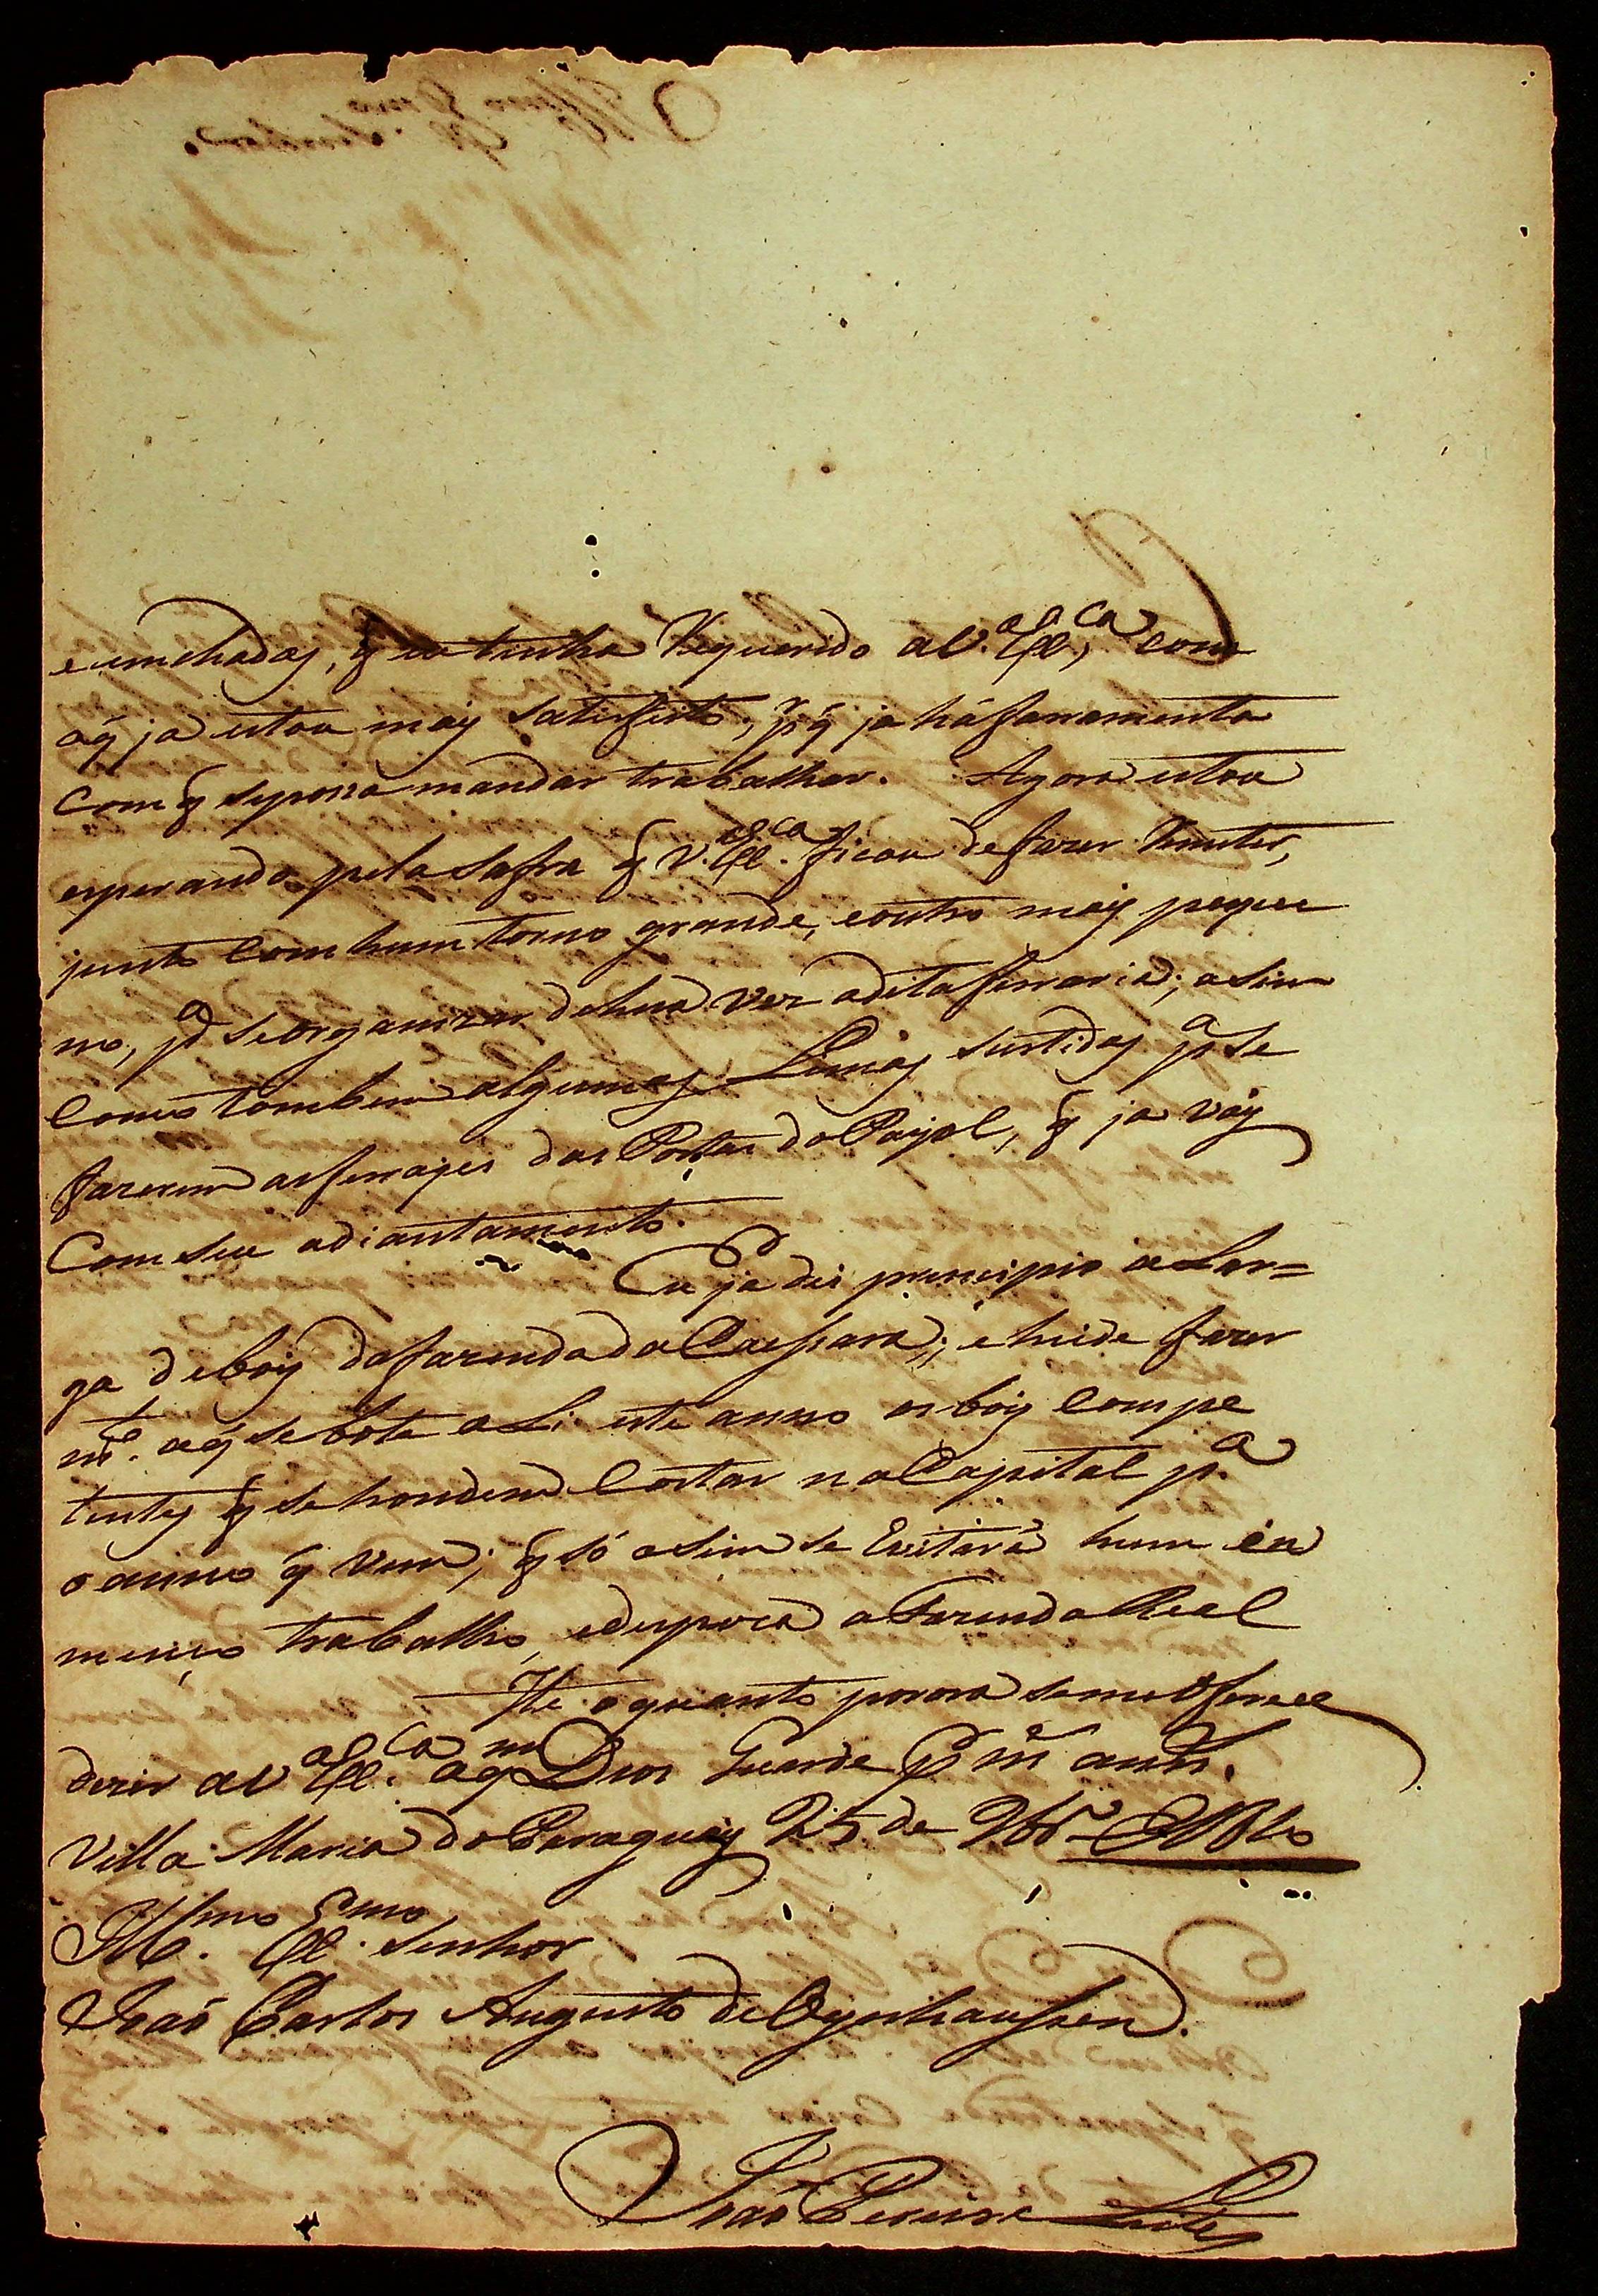 e emchadas, q̃ eu tinha Requerido a V. Exª.ca com
o q̃ ja estou mais satisfeito, pr q̃ ja há farramenta
com q̃ se possa mandar trabalhar. Agora estou
esperando pela Safra q̃ V. Ex.ca ficou de fazer Remeter,
junto com hum torno grande, e outro mais peque
no, pa se organizar de hua vez a dita ferraria; asim
como tambem algumas Limas surtidas pa se
fazerem as ferrajes das Portas do Payol, q̃ ja vay
Com seu adiantamento.
Eu ja dei principio a Lar=
ga de bois da fazenda da Caissara; e heide fazer
me. a q̃ se bote a Li este anno os bois Compe
tentes q̃ se houderem Cortar na Capital p.a
o anno q̃ vem; q̃ só asim se Evitará hum in
menço trabalho, e despeza a Fazenda Real
He o quanto por ora se me oferece
dizer a V Ex.ca a qm Deos Guarde Por ms anns.
Villa Maria do Paraguay 25 de 9br.o
Illmo Exmo Senhor
João Carlos Augusto de Oyenhaussen.
João Pereira Leite